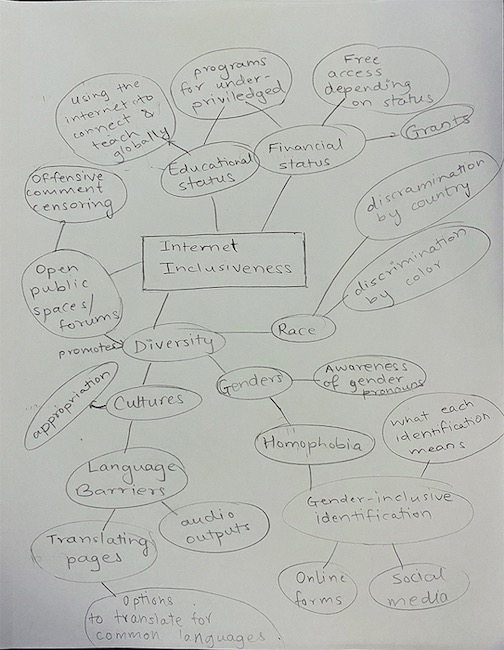 using the
internet to
connect &
teach
globally
programs
for under-
priviledged
Free
access
depending
on status
Grants
Educational
status
Financial
status
Offensive
comment
censoring
discramination
by country
Internet
Inclusiveness
Open
public
spaces/
forums
discrimination
by color
promotes
Diversity
Race
appropriation
Cultures
Genders
Awareness
of gender
pronouns
what each
identification
means
Homophobia
Language
Barriers
Gender-inclusive
identification
audio
outputs
Translating
pages
Online
forms
Social
media
Options
to translate for
common languages.